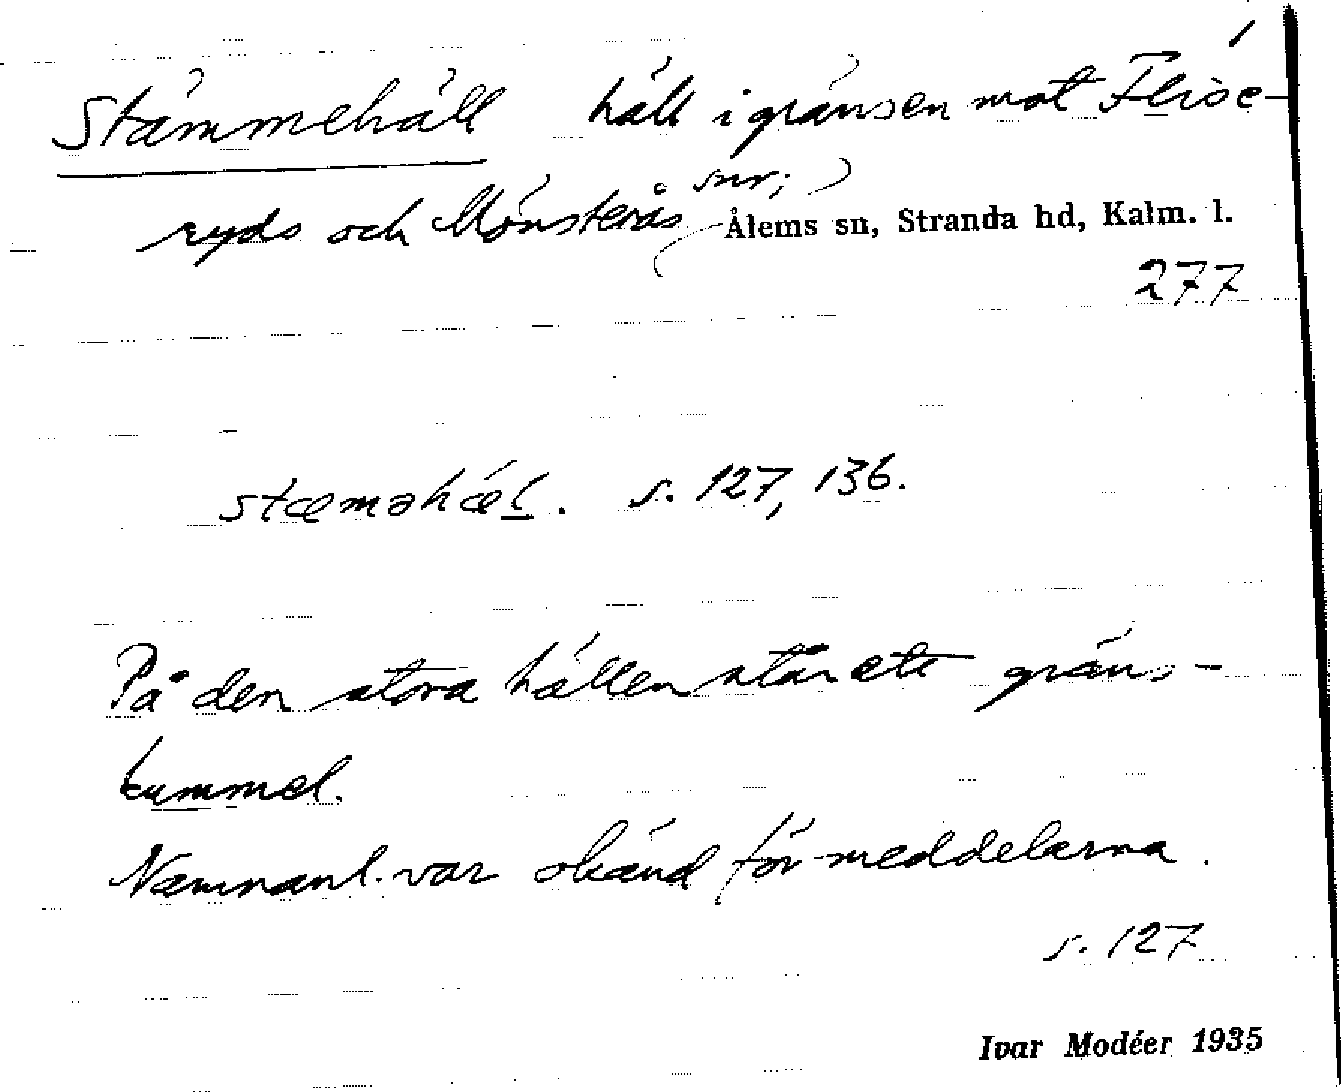 Stämmehäll häll i gränsen mot Flise-
ryds och Mönsterås snr;
Ålems sn, Stranda hd, Kalm. l.
277
stæməhæl. s. 127, 136.
På den stora hällen står ett gräns-
kummel.
Namnanl. var okänd för meddelarna.
s. 127
Ivar Modéer 1935